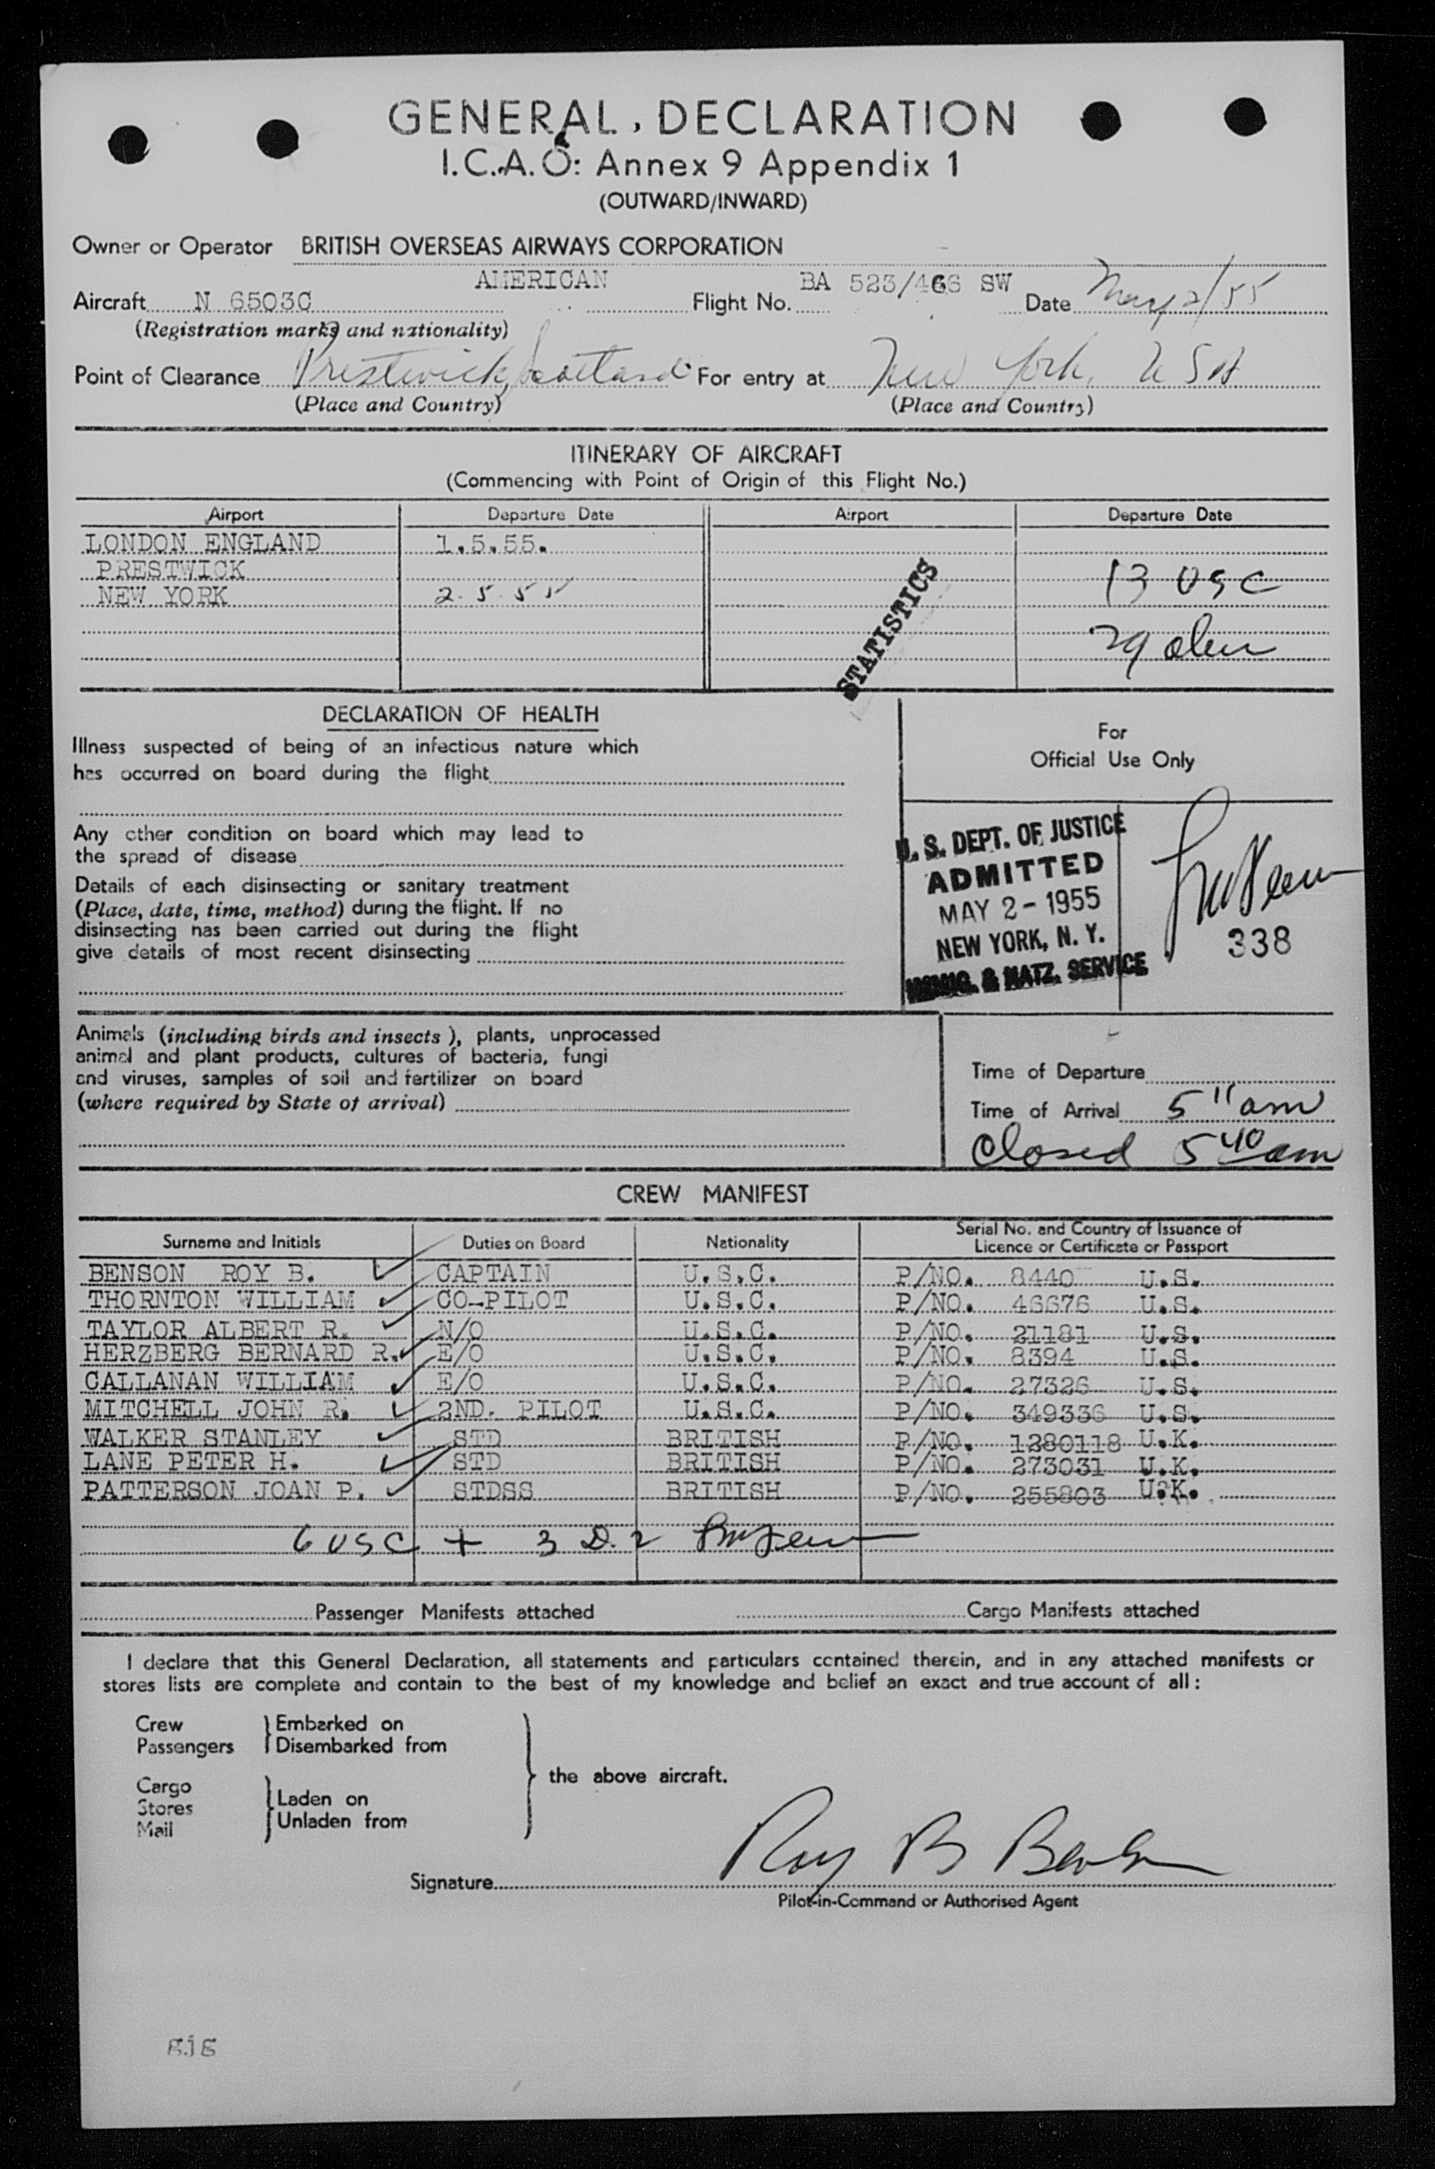 GENERAL, DECLARATION
I.C.A.O: Annex 9 Appendix 1
(OUTWARD/INWARD)
Owner or Operator BRITISH OVERSEAS AIRWAYS CORPORATION
Aircraft N 6503C AMERICAN Flight No. BA 523/466 SW Date May 2/55
(Registration marks and nationality)
Point of Clearance Prestwick, Scotland For entry at New York, USA
(Place and Country) (Place and Country)
ITINERARY OF AIRCRAFT
(Commencing with Point of Origin of this Flight No.)
Airport Departure Date Airport Departure Date
LONDON ENGLAND 1.5.55.
PRESTWICK 13 USC
NEW YORK 2.5.55
29 alien
STATISTICS
DECLARATION OF HEALTH
Illness suspected of being of an infectious nature which
has occurred on board during the flight
Any other condition on board which may lead to
the spread of disease
Details of each disinsecting or sanitary treatment
(Place, date, time, method) during the flight. If no
disinsecting has been carried out during the flight
give details of most recent disinsecting
For
Official Use Only
U. S. DEPT. OF JUSTICE
ADMITTED
MAY 2 - 1955
NEW YORK, N. Y.
IMMIG. & NATZ. SERVICE
338
Animals (including birds and insects), plants, unprocessed
animal and plant products, cultures of bacteria, fungi
and viruses, samples of soil and fertilizer on board
(where required by State of arrival)
Time of Departure
Time of Arrival 5 11 am
Closed 5 40 am
CREW MANIFEST
Surname and Initials Duties on Board Nationality Serial No. and Country of Issuance of Licence or Certificate or Passport
BENSON ROY B. CAPTAIN U.S.C. P/NO. 8440 U.S.
THORNTON WILLIAM CO-PILOT U.S.C. P/NO. 46676 U.S.
TAYLOR ALBERT R. N/O U.S.C. P/NO. 21181 U.S.
HERZBERG BERNARD R. E/O U.S.C. P/NO. 8394 U.S.
CALLANAN WILLIAM E/O U.S.C. P/NO. 27326 U.S.
MITCHELL JOHN R. 2ND. PILOT U.S.C. P/NO. 349336 U.S.
WALKER STANLEY STD BRITISH P/NO. 1280118 U.K.
LANE PETER H. STD BRITISH P/NO. 273031 U.K.
PATTERSON JOAN P. STDSS BRITISH P/NO. 255803 U.K.
6 USC + 3 D.2
Passenger Manifests attached Cargo Manifests attached
I declare that this General Declaration, all statements and particulars contained therein, and in any attached manifests or
stores lists are complete and contain to the best of my knowledge and belief an exact and true account of all:
Crew Embarked on
Passengers Disembarked from
the above aircraft.
Cargo
Stores Laden on
Mail Unladen from
Signature Roy B Benson
Pilot-in-Command or Authorised Agent
gjg